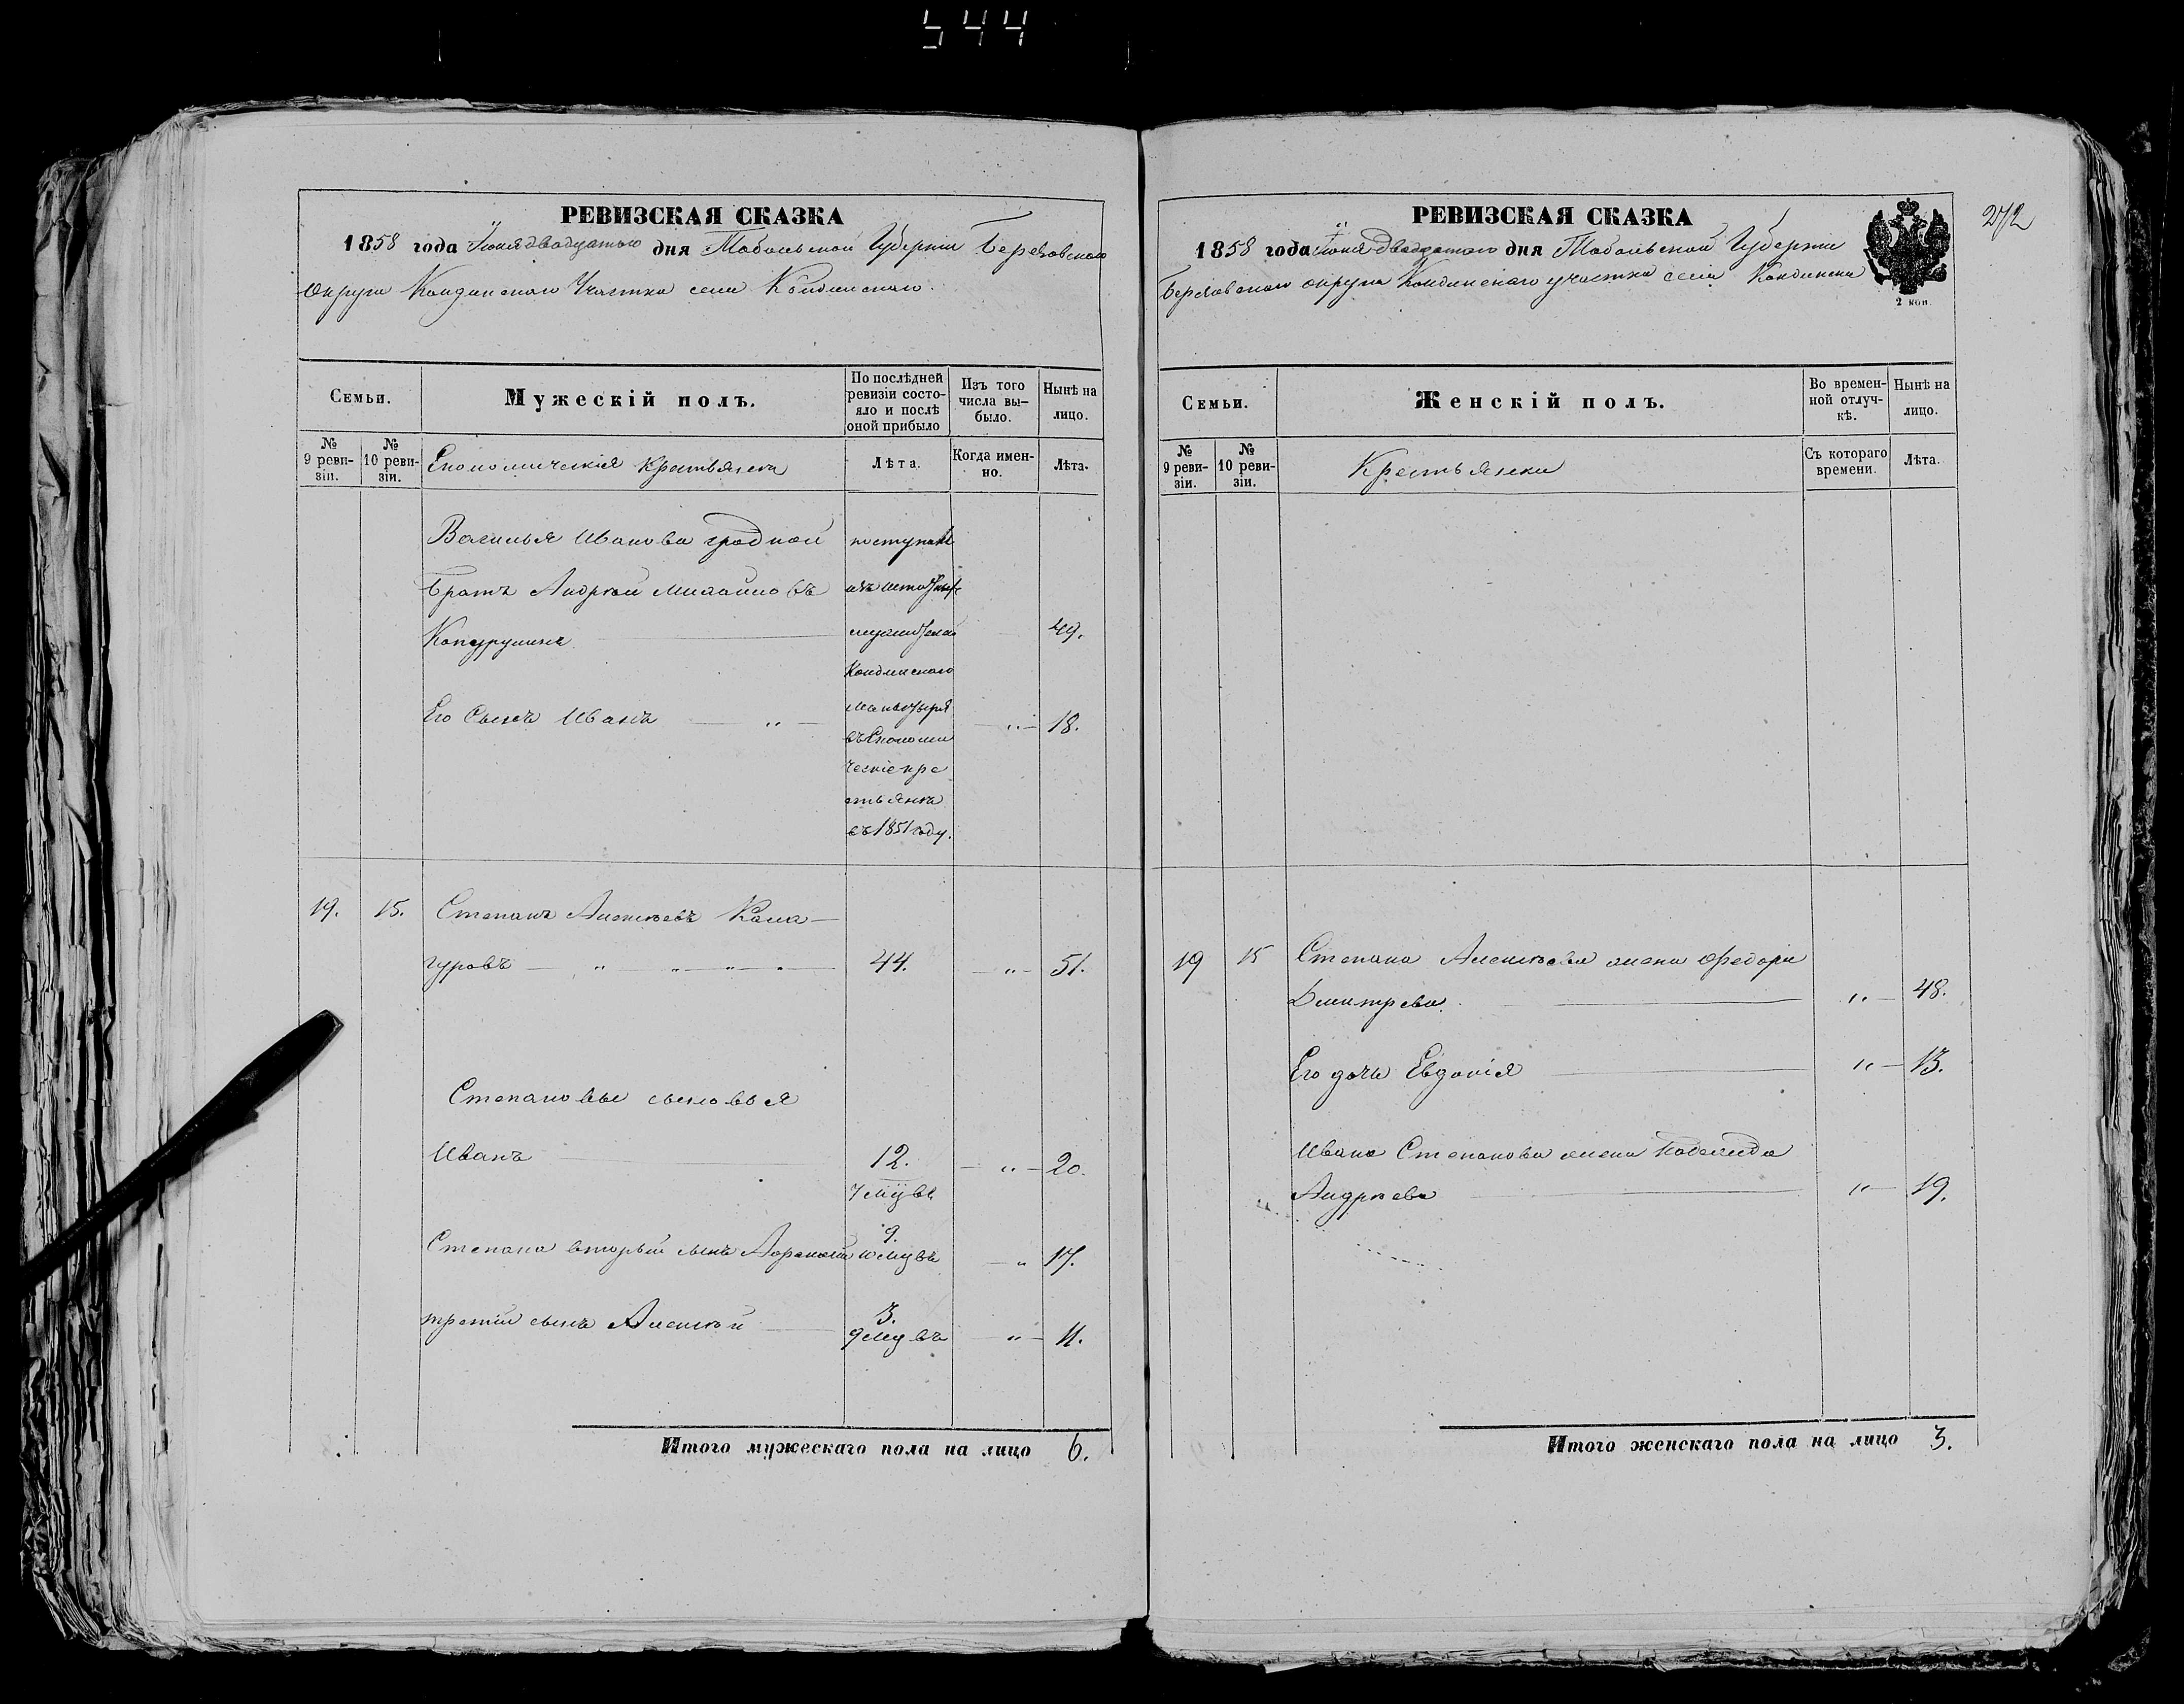 544
РЕВИЗСКАЯ СКАЗКА
1858 года Іюня двадцатого дня Тобольской Губерніи Березовского
Округа Кондинского Участка села Кондинского.
Семьи.
Мужескій полъ.
По послѣдней ревизіи состояло и послѣ оной прибыло
Изъ того числа выбыло.
Нынѣ на лицо.
№ 9 ревизіи.
№ 10 ревизіи.
Економическія крестьяне
Лѣта.
Когда именно.
Лѣта.
Василья Иванова родной поступилъ
братъ Андрей Михайловъ изъ
49.
Кондинского
Его Сынъ Иванъ — „ — монастыря — „ — 18.
въ Економи
ческіе кре
стьяне
въ 1851 году.
19. 15. Степанъ Алексѣевъ Кама—
гуровъ — „ — „ — „ — „ — 44. — „ — 51.
Степановы сыновья
Иванъ — 12. — „ — 20.
7 мцвъ
Степана вторый сынъ 9. 10 мцвъ — „ 17.
третій сынъ Алексѣй — 3. 9 мцвъ — „ — 11.
Итого мужескаго пола на лицо 6.
272
РЕВИЗСКАЯ СКАЗКА
1858 года Іюня двадцатого дня Тобольской Губерніи
Березовского округа Кондинского участка села Кондинска
2 коп.
Семьи.
Женскій полъ.
Во временной отлучкѣ.
Нынѣ на лицо.
№ 9 ревизіи.
№ 10 ревизіи.
Крестьянки
Съ котораго времени.
Лѣта.
19 15 Степана Алексѣева жена Федора
Дмитрева. — „ — 48.
Его дочь Евдокія — „ — 13.
Ивана Степанова жена
Андрѣева — „ — 19.
Итого женскаго пола на лицо 3.